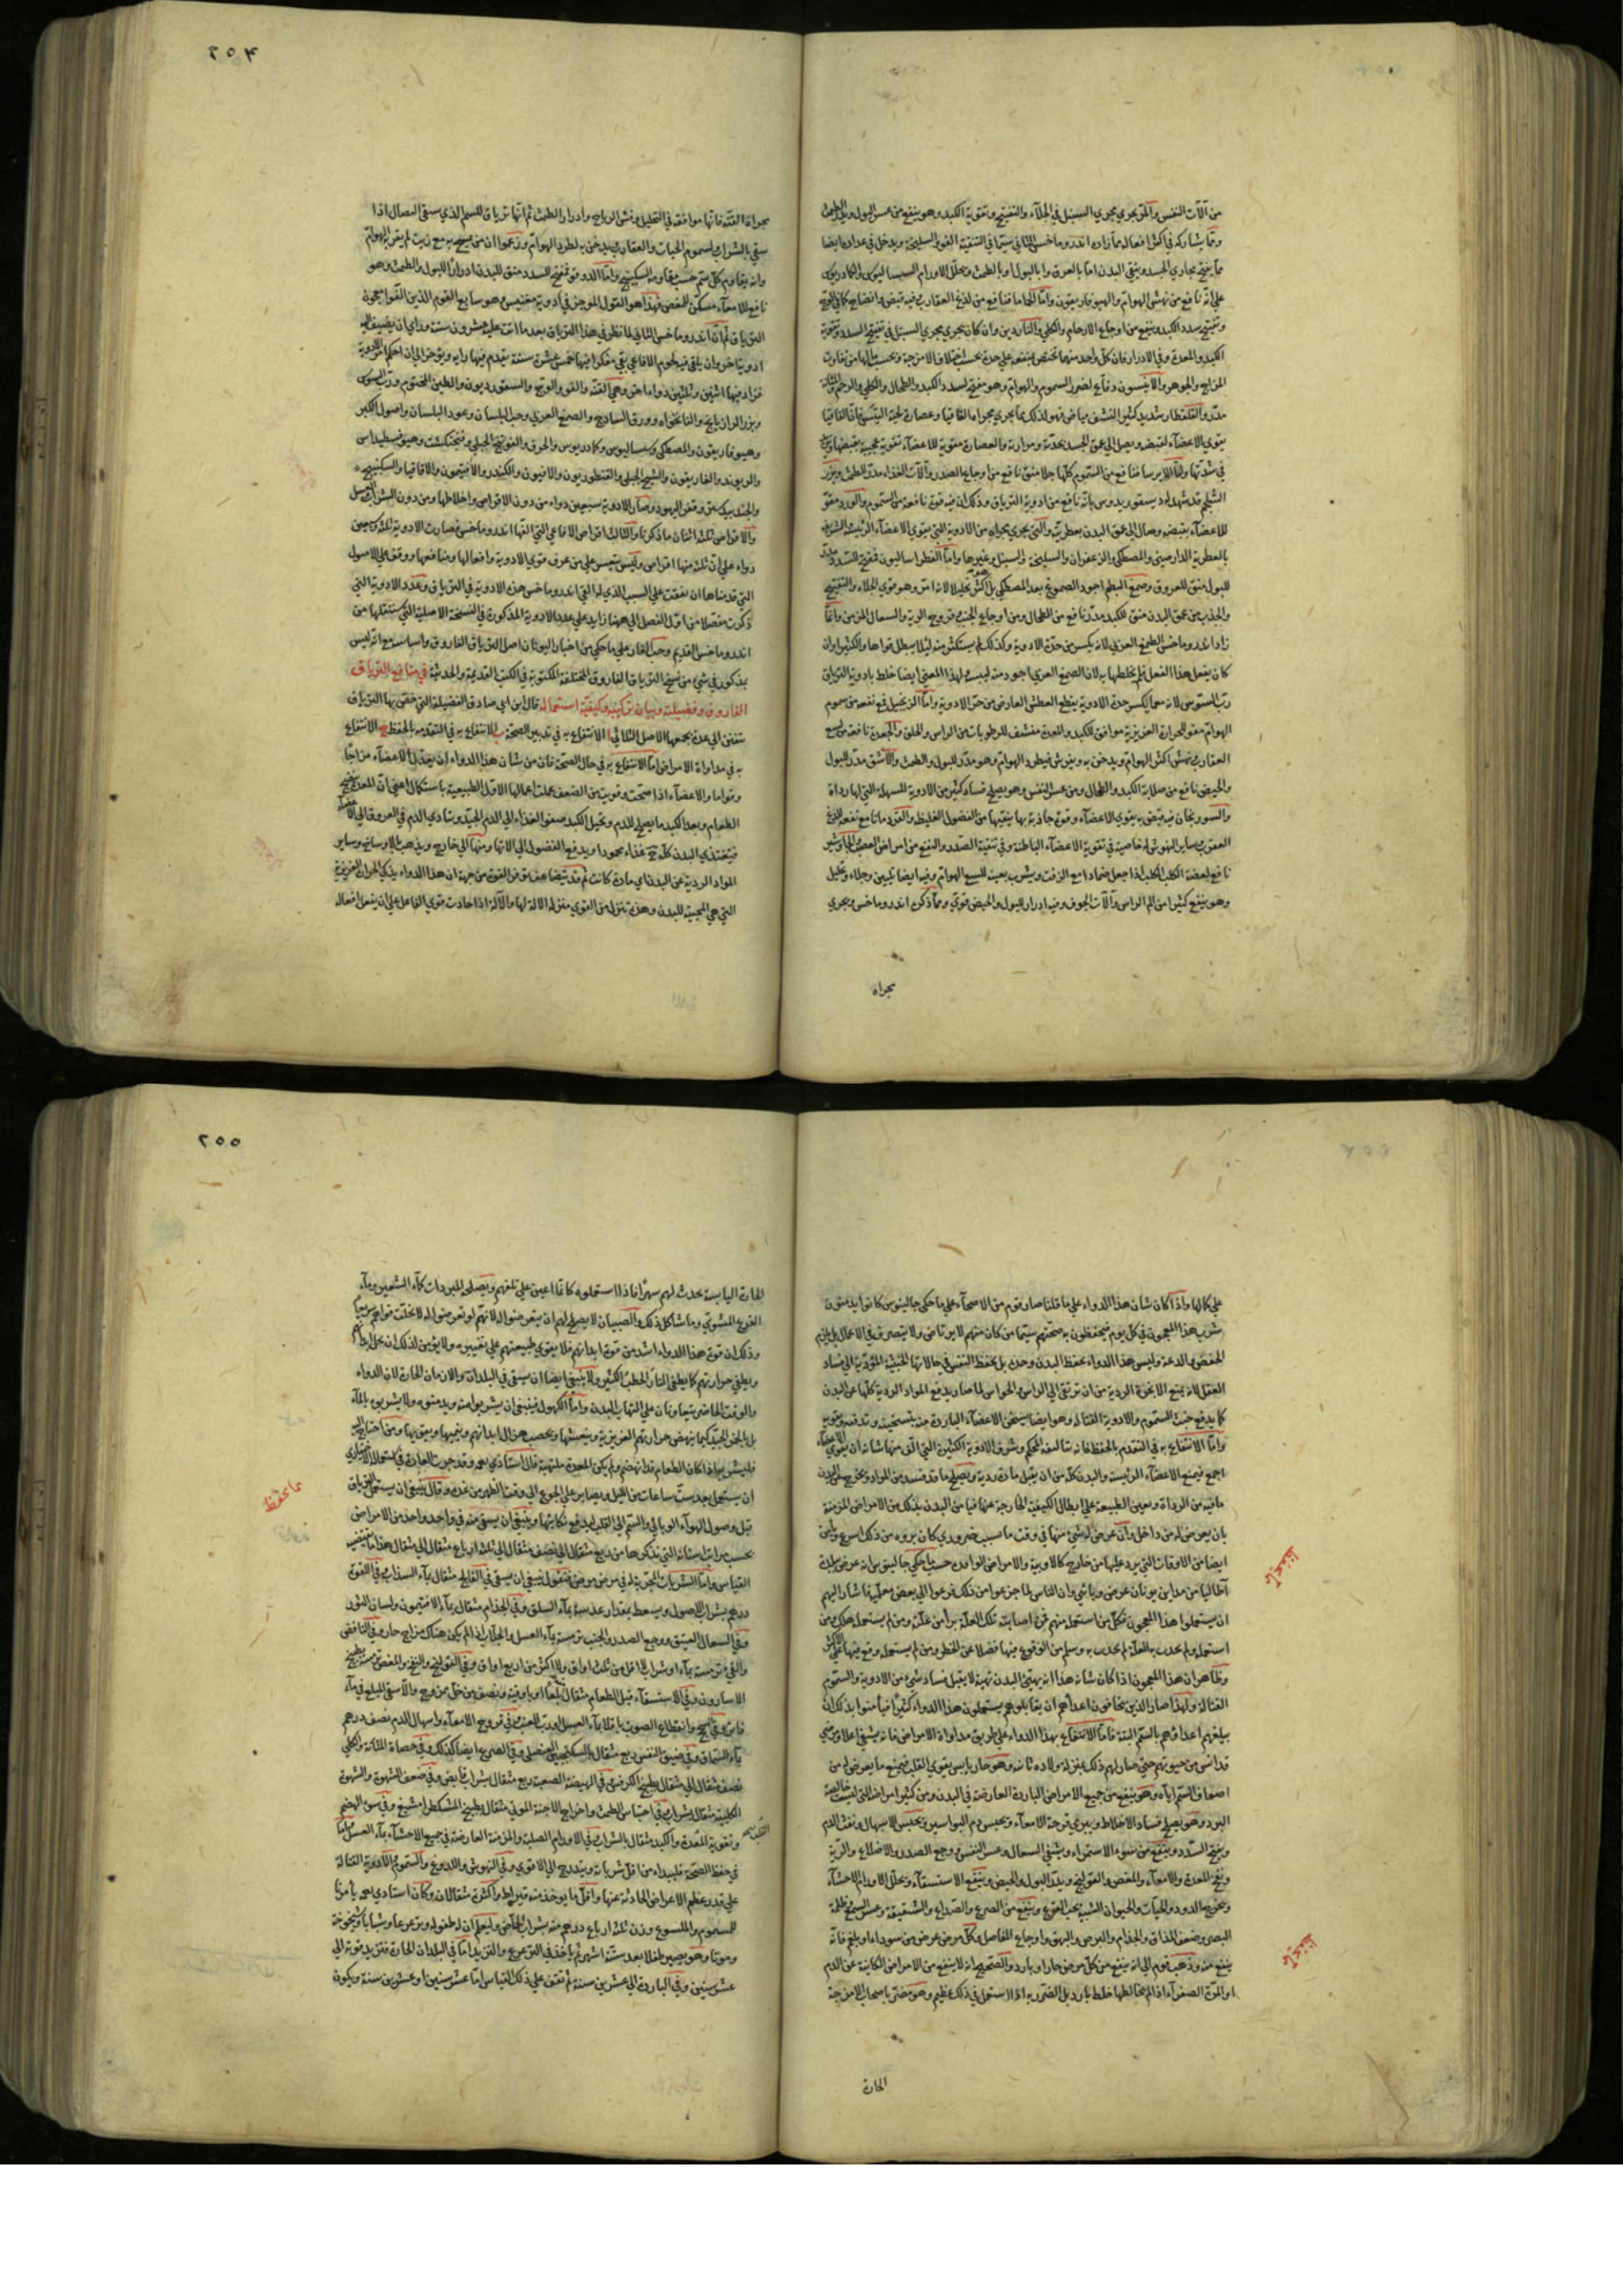 من آلات النفس والمر يجري مجري السنبل في الجلاء والتفتيح وتقوية الكبد وهو ينفع من عسر البول ويدر الطمث
ومما يشاركه في اكثر افعاله مما زاده اندروماخس الثاني سيما في التنقية الفو والسليخة ويدخل في عدادها ايضا
مما يفتح مجاري الجسد وينقي البدن اما بالعرق واما بالبول او بالطمث ويحلل الاورام
علي انه نافع من نهش الهوام والهيوفاريقون واما الجاما فنافع من لذع العقارب فيه قبض وانضاج كما في الوج
وتفتيح سدد الكبد وينفع من اوجاع الارحام والكلي والناردين وان كان يجري مجري السنبل في تفتيح السدد وتقوية
الكبد والمعدة وفي الادرار فان كل واحد منهما يختص بنفعه علي حدة بحسب اختلاف الامزجة وبحسب مالها من تفاوت
المزاج والجوهر والانيسون دفاع لضرر السموم والهوام وهو مفتح لسدد الكبد والطحال والكلي والرحم
يقوي الاعضاء بقبضه ويصل الي عمق الجسد بحدته ومرارته والعصارة مقوية للاعضاء تقوية عجيبة بقبضها
للاعضاء بقبضه وصال الي عمق البدن بعطريته والتي يجري مجراه من الادوية التي يقوي الاعضاء الرئيسة الشريفة
بالعطرية الدارصيني والمصطكي والزعفران والسليخة والسنبل وغيرها واما الفطراساليون فمفتح للسدد
للبول منق للعروق وصمغ البطم اجود الصموغ بعد المصطكي بل اكثر تحليلا لانه امر وهو قوي الجلاء والتفتيح
والجذب من عمق البدن منق للكبد مدر نافع من الطحال ومن اوجاع الجنب وقروح الرية والسعال المزمن وانما
زاد اندروماخس الصمغ العربي لانه يكسر من حدة الادوية وكذلك لم يستكثر منه لئلا يبطل قواها والكثيرا وان
كان يفعل هذا الفعل فلم يخلطها به لان الصمغ العربي اجود منه ليست لهذا المعني ايضا خلط بادوية الترياق
رب السوس لانه مع ما يكسر حدة الادوية يقطع العطش العارض من حر الادوية واما الزنجبيل فمع نفعه من سموم
الهوام مقو للحرارة الغريزية موافق للكبد والمعدة منشف للرطوبات من الراس والحلق والجعدة نافعة من لسع
العقارب ونهش اكثر الهوام ويدخن به ويفرش فيطرد الهوام وهو مدر للبول والطمث والاشق مدر للبول
والحيض نافع من صلابة الكبد والطحال ومن عسر النفس وهو يصلح فساد كثير من الادوية المسهلة التي لها رداة
والسورنجان فيه قبض به يقوي الاعضاء وقوة جاذبة بها ينقيها من الفضول الغليظة والقردمانا مع نفعه للذع
العقرب وساير الهوش له خاصية في تقوية الاعضاء الباطنة وفي تنقية الصدر والنفع من امراض العصب والجاوشير
نافع لعضة الكلب الكلب اذا جعل ضمادا مع الزفت ويشرب بعينه للسع الهوام وفيه ايضا تليين وجلاء وتحليل
وهو ينفع كثيرا من الم الراس وآلات الجوف وفيه ادرار للبول والحيض قوي ومما ذكر اندروماخس ويجري
مجراه
٢٥٤
مجراه القنه فانها موافقة في التحليل وفش الرياح وادرار الطمث ثم انها ترياق للسم الذي يسقي النصال اذا
سقي بالشراب ولسموم الحيات والعقارب يدخن به لطرد الهوام وزعموا ان من مسح به مع زيت لم يقربه الهوام
وانه يقاوم كل سم حسب مقاومة السكبينج واما الدوقو فمفتح للسدد منق للبدن ادرارا للبول والطمث وهو
نافع للامعاء مسكن للمغص فهذا هو القول الموجز في ادوية مغنيس وهو سابع القوم الذين الفوا معجون
الترياق ثم ان اندروماخس الثاني لما نظر في هذا الترياق بعد ما اتت عليه عشرون سنة وراي ان يضيف اليه
ادوية اخر وان يلقي فيه لحوم الافاعي بقي مفكرا فيها خمس عشرة سنة يقدم فيها رايه ويؤخر الي ان احكم امر الادوية
فزاد فيها اثنين وثلثين دواء اخر وهي القنه والفو والوج والسقورديون والطين المختوم ورب السوس
وبزر الرازيانج والنانخواه وورق السادج والصمغ العربي وحب البلسان وعود البلسان واصول الكبر
وهيوفاريقون والمصطكي وسساليوس وكمادريوس والحرف والفوتنج الجبلي وفنجنكشت وهيوفسطيداس
والريوند والغاريقون والشيح الجبلي والقنطوريون والافيون والكندر والافتيمون والاقاقيا والسكبينج
والجندبيدستر وقفر اليهود وصار الادوية سبعين دواء من دون الاقراص واخلاطها ومن دون الشراب والعسل
والاقراص ثلثة اثنان ما ذكرنا والثالث اقراص الافاعي التي القاها اندروماخس فصارت الادوية ثلثة وسبعين
دواء علي ان ثلثة منها اقراص وليس يعسر علي من عرف قوي الادوية وافعالها ومنافعها ووقف علي الاصول
التي قدمناها ان يقف علي السبب الذي له القي اندروماخس هذه الادوية في الترياق وعدد الادوية التي
ذكرت مفصلا من اول الفصل الي ههنا زايد علي عدد الادوية المذكورة في النسخة الاصلية التي سننقلها من
اندروماخس القديم وحب الغار علي ما حكي من اخبار اليونان اصل الترياق الفاروق واساسه مع انه ليس
بمذكور في شئ من نسخ الترياق الفاروق المختلفة المكتوبة في الكتب القديمة والحديثة في منافع الترياق
الفاروق وفضيلته وبيان تركيبه وكيفية استعماله قال ابن ابي صادق الفضيلة التي خص بها الترياق
تفنن الي عدة يجمعها الاصل الثلاثي ا الانتفاع به في تدبير الصحة ب الانتفاع به في التقدم بالحفظ ج الانتفاع
به في مداواة الامراض اما الانتفاع به في حال الصحة فان من شان هذا الدواء ان يعدل الاعضاء مزاجا
وقواما والاعضاء اذا صحت وقويت من الضعف عملت اعمالها الاول الطبيعية باستكمال اعني ان المعدة تنضج
الطعام وبعد الكبد ما يصلح للدم وتحيل الكبد صفو الغذاء الي الدم الجيد ويتادي الدم في العروق الي الاعضاء
فيغتذي البدن كله غذاء محمودا ويدفع الفضول الي الاتها ومنها الي خارج ويذهب بالاوساخ وساير
المواد الردية عن البدن اي مادة كانت ثم قد يتضاعف توفر القوة من جهة ان هذا الدواء يذكي الحرارة الغريزية
التي هي المحيية للبدن وهذه تنزل من القوي منزلة الالة لها والآلة اذا جادت قوي الفاعل علي ان يفعل افعاله
علي كمالها واذا كان شان هذا الدواء علي ما قلنا صار قوم من الاصحاء علي ما حكي جالينوس كانوا يدمنون
شرب هذا المعجون في كل يوم فيحفظون به صحتهم سيما من كان منهم لا يرتاض ولا يتصرف في الاعمال بل يلزم
الخفض والدعة وليس هذا الدواء يحفظ البدن وحده بل يحفظ النفس في حالاتها الخبيثة المؤدية الي فساد
العقل لانه يمنع الابخرة الردية من ان ترتقي الي الراس والحواس لما صار يدفع المواد الردية كلها عن البدن
كما يدفع خبث السموم والادوية القتالة وهو ايضا يسخن الاعضاء الباردة
واما الانتفاع به في التقدم بالحفظ فانه بتاليفه المحكم وشرف الادوية الكثيرة التي الف منها شانه ان يقوي الاعضاء
اجمع فيمنع الاعضاء الرئيسة والبدن كله من ان يقبل مادة ردية ويصلح ما قد فسد من المواد ويخرج عن البدن
مافيه من الرداة ويعين الطبيعة علي ابطال الكيفية الخارجة عنها فيامن البدن بذلك من الامراض المزمنة
بان يعرض له من داخل وان عرض له شئ منها في وقت ما بسبب ضروري كان بروه من ذلك اسرع ويامن
ايضا من الاوقات التي يرد عليها من خارج كالاوبية والامراض الوافدة حسب ما حكي جالينوس انه عرض ببلدة
انطاليا من مداين يونان عرض وبائي وان الناس لما جزعوا من ذلك فزعوا الي بعض معلميه فاشار اليهم
ان يستعملوا هذا المعجون فكل من استعمله منهم ممن اصابته تلك العلة برا من علته ومن لم يستعمله هلك ومن
استعمله ولم يحدث به العلة لم يحدث به وسلم من الوقوع فيها فضلا عن الخطر ومن لم يستعمله وقع فيها علي الاكثر
وظاهر ان هذا المعجون اذا كان شانه هذا انه يهيئ البدن تهيئة لا يقبل فساد شئ من الادوية والسموم
القتالة ولهذا صار الذين يخافون اعداءهم ان يقابلوهم يستعملون هذا الدواء كثيرا فيامنوا بذلك ان
يبلغهم اعداؤهم بالسم البتة فاما الانتفاع بهذا الدواء علي طريق مداواة الامراض فانه يشفي اعلا ومرضي
قد ائس من حيوتهم حتي صار لهم ذلك بمنزلة ولادة ثانية وهو حار يابس يقوي القلب فيمنع ما يعرض له من
اضعاف السم اياه وهو ينفع من جميع الامراض الباردة العارضة في البدن ومن كثير امراض التي ليست خالصة
البرد وهو يصلح فساد الاخلاط ويبري قرحة الامعاء ويحبس دم البواسير ويحبس الاسهال ونفث الدم
ويفتح السدد وينفع من سوء الاستمراء ويشفي السعال وعسر النفس ووجع الصدر والاضلاع والرية
ونفخ المعدة والامعاء والمغص والقولنج ويدر البول والحيض وينفع الاستسقاء ويحلل الاورام الاحشاء
ويخرج الدود والحيات والحيوان الشبيه بحب القرع وينفع من الصرع والصداع والشقيقة وعسر السمع وظلمة
البصر وضعف المذاق والجذام والبرص والبهق واوجاع المفاصل وكل مرض عرض من سوداء او بلغم فانه
ينفع منه وذهب قوم الي انه ينفع من كل مرض حار او بارد والصحيح انه لا ينفع من الامراض الكائنة عن الدم
او المرة الصفراء اذا لم يخالطها خلط بارد بل الضرر به اذا استعمل في ذلك عظيم وهو مضر باصحاب الامزجة
الحارة
٢٥٥
الحارة اليابسة يحدث لهم سهرا فاذا استعملوه كانما اعين علي تلفهم ويصلحه المبردات كماء الشعير وماء
القرع المشوي وما شاكل ذلك والصبيان لا يصلح لهم ان يتعرضوا له لانهم لو تعرضوا له لانحلت قواهم سريعا
وذلك ان قوة هذا الدواء اشد من قوة ابدانهم فلا يقوي طبيعتهم علي تغييره ولا يؤمن لذلك ان يحل ابدانهم
ويطفي حرارتهم كما يطفي النار الحطب الكثير ولا ينبغي ايضا ان يسقي في البلدان والازمان الحارة لان الدواء
والوقت الحاضر يتعاونان علي التهاب البدن واما الكهول فينبغي ان يشربوا منه ويدمنوه ولا يشربوه بالماء
بل بالخمر الجيد كيما ينهض حرارتهم الغريزية وينعشها ويخصب هزال ابدانهم وينميها ويقويها ومن احتاج اليه
فليشربه اذا كان الطعام قد انهضم ولم يكن المعدة ملتهبة قال استاذي بعه وقد جرت العادة في استعماله الاختياري
ان يستعمل بعد ست ساعات من الليل ويصابر علي الجوع الي وقت الظهر من غده وقال ينبغي ان يستعمل الترياق
قبل وصول الهواء الوبائي والسم الي القلب ليدفع نكايتها وينبغي ان يسقي منه في واحد واحد من الامراض
بحسب مراتب اسنانه التي نذكرها من ربع مثقال الي نصف مثقال الي ثلثة ارباع مثقال الي مثقال هذا ما يقتضيه
القياس واما الشربات المجربة له في مرض مرض فنقول ينبغي ان يسقي في الفالج مثقال بماء السذاب وفي اللقوة
درهم بشراب الاصول ويسعط بمقدار عدسة بماء السلق وفي الجذام مثقال بماء الافتيمون ولسان الثور
وفي السعال العتيق ووجع الصدر والجنب ترمسة بماء العسل والجلاب اذا لم يكن هناك مزاج حار وفي النافض
والقئ ترمسة بماء او شراب لا اقل من ثلث اواق ولا اكثر من اربع اواق وفي القولنج والنفخ والمغص ترمسة بطبيخ
الاسارون وفي الاستسقاء قبل الطعام مثقال
وانقطاع الصوت باقلا بماء العسل او رب العنب وفي قروح الامعاء واسهال الدم نصف درهم
بماء السماق وفي ضيق النفس ربع مثقال بالسكنجبين العنصلي وفي الصرع ايضا كذلك وفي حصاة المثانة والكلي
نصف مثقال الي مثقال بطبيخ الكرفس وفي الهيضة الصعبة ربع مثقال بشراب قابض وفي ضعف الشهوة والشهوة
الكلبية مثقال بشراب وفي احتباس الطمث واخراج الاجنة الموتي مثقال بطبيخ المشكطرامشيغ وفي سوء الهضم
وتقوية المعدة والكبد مثقال بالشراب وفي الاورام الصلبة والمزمنة العارضة في جميع الاحشاء بماء العسل واما
في حفظ الصحة فليبداء من اقل شرباته ويتدرج الي الاقوي وفي النهوش واللدوغ والسموم والادوية القتالة
علي قدر عظم الاعراض الحادثة عنها واقل ما يوخذ منه قيراط واكثره مثقالان وكان استاذي بعه يامرنا
للمسموم والملسوع وزن ثلثة ارباع درهم منه بشراب الحماض وليعلم ان له طفولة وترعرعا وشبابا وشيخوخة
وموتا وهو يصير طفلا بعد ستة اشهر ثم ياخذ في الترعرع والتزيد اما في البلدان الحارة فتزيد قوته الي
عشر سنين وفي الباردة الي عشرين سنة ثم تقف علي ذلك القياس اما عشر سنين او عشرين سنة ويكون